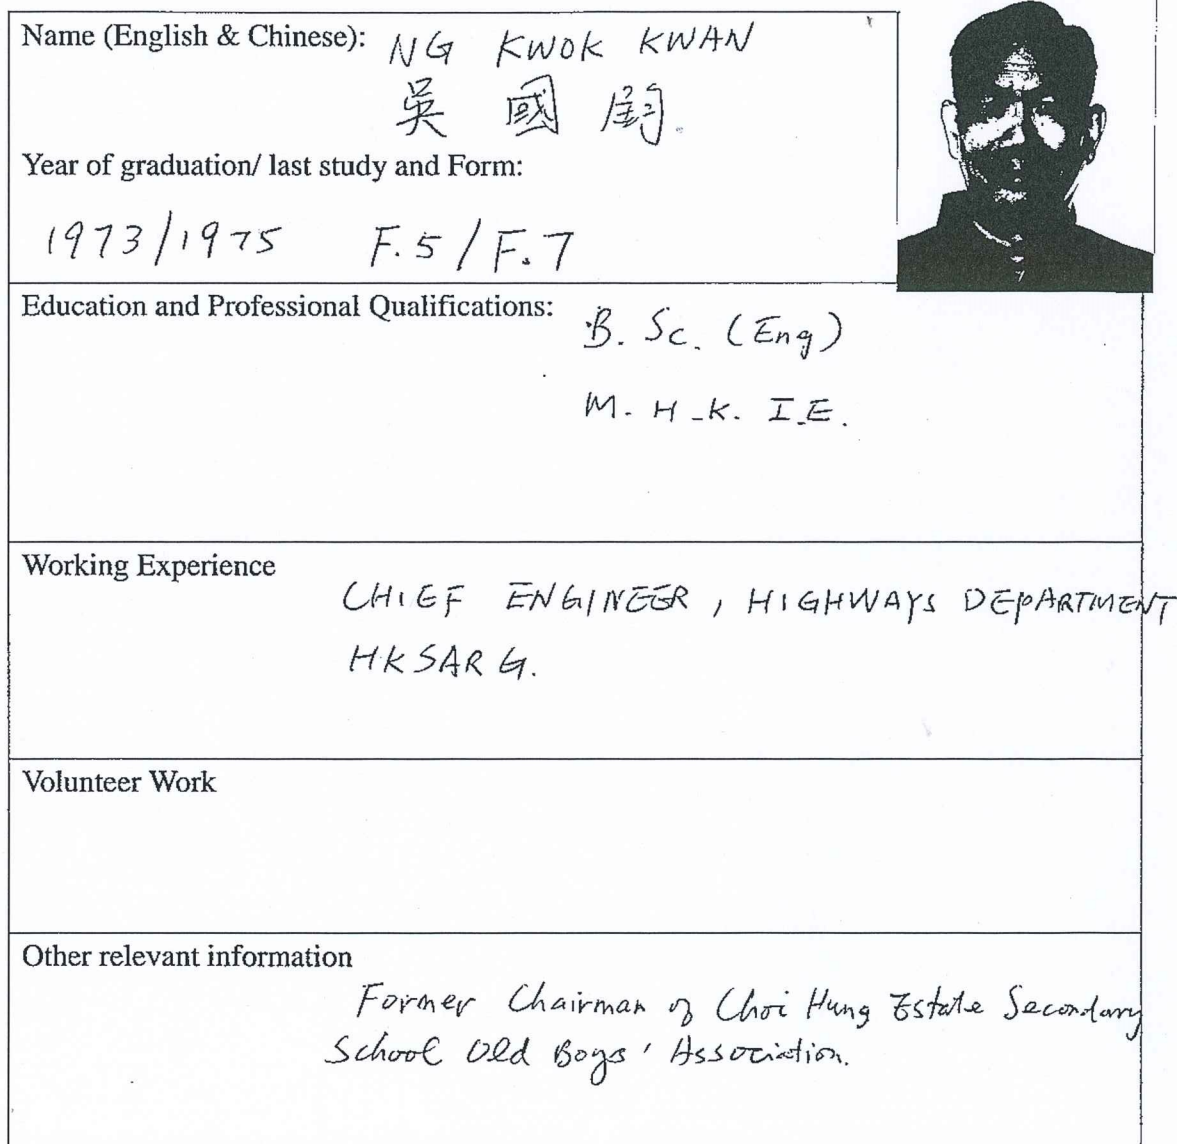 Name (English & Chinese): NG KWOK KWAN
吳 國 鈞
Year of graduation/ last study and Form:
1973/1975 F.5 / F.7
Education and Professional Qualifications:
B. Sc. (Eng)
M. H. K. I.E.
Working Experience
CHIEF ENGINEER, HIGHWAYS DEPARTMENT
HKSARG.
Volunteer Work
Other relevant information
Former Chairman of Choi Hung Estate Secondary
School Old Boys' Association.